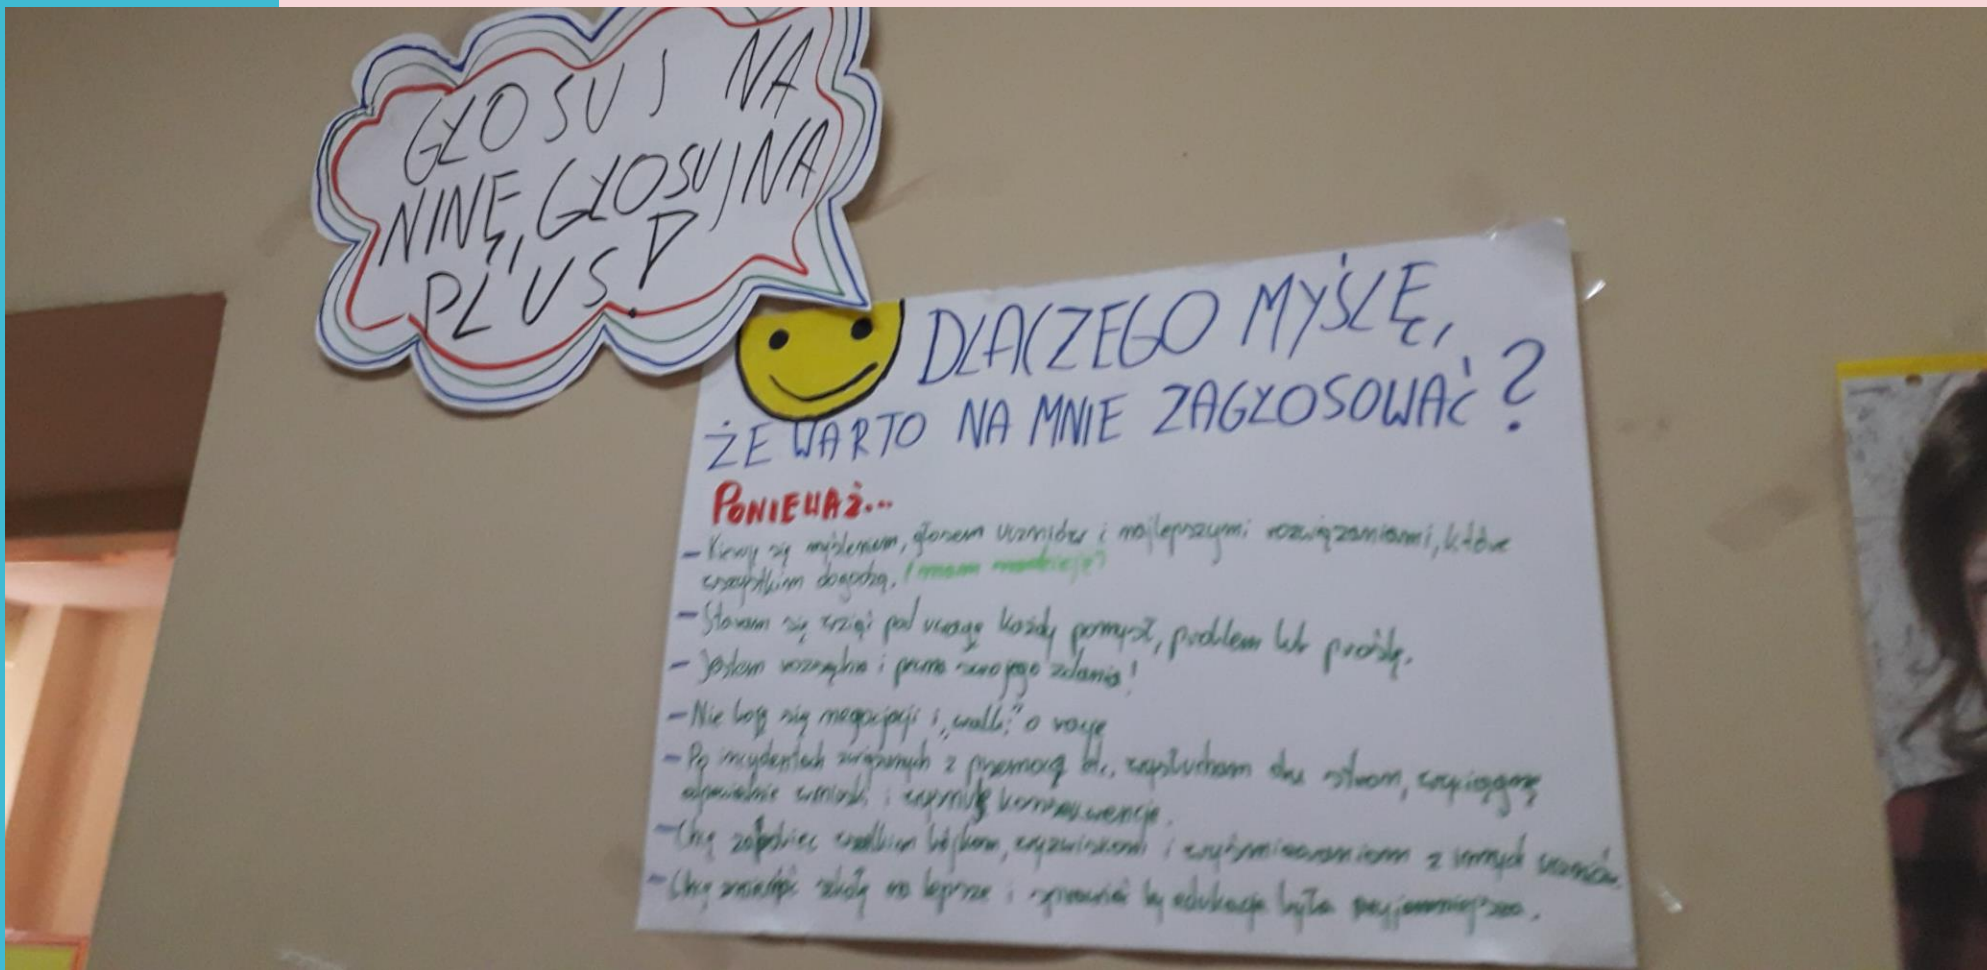 GŁOSUJ NA
NINĘ, GŁOSUJ NA
PLUS. P
DLACZEGO MYŚLĘ,
ŻE WARTO NA MNIE ZAGŁOSOWAĆ?
PONIEWAŻ...
- Kieruję się myśleniem, głosem uczniów i najlepszymi rozwiązaniami, które
wszystkim dogodzą. (mam nadzieję)
- Staram się wziąć pod uwagę każdy pomysł, problem lub prośbę.
- Jestem rozsądna i pewna swojego zdania!
- Nie boję się negocjacji i "walki" o rację
- Po incydentach związanych z przemocą itc. wysłucham obu stron, wyciągnę
odpowiednie wnioski i konsekwencje.
- Chcę zapobiec wszelkim bójkom, wyzwiskom i wyśmiewaniom z innych uczniów.
- Chcę zmienić szkołę na lepsze i sprawić by edukacja była przyjemniejsza.